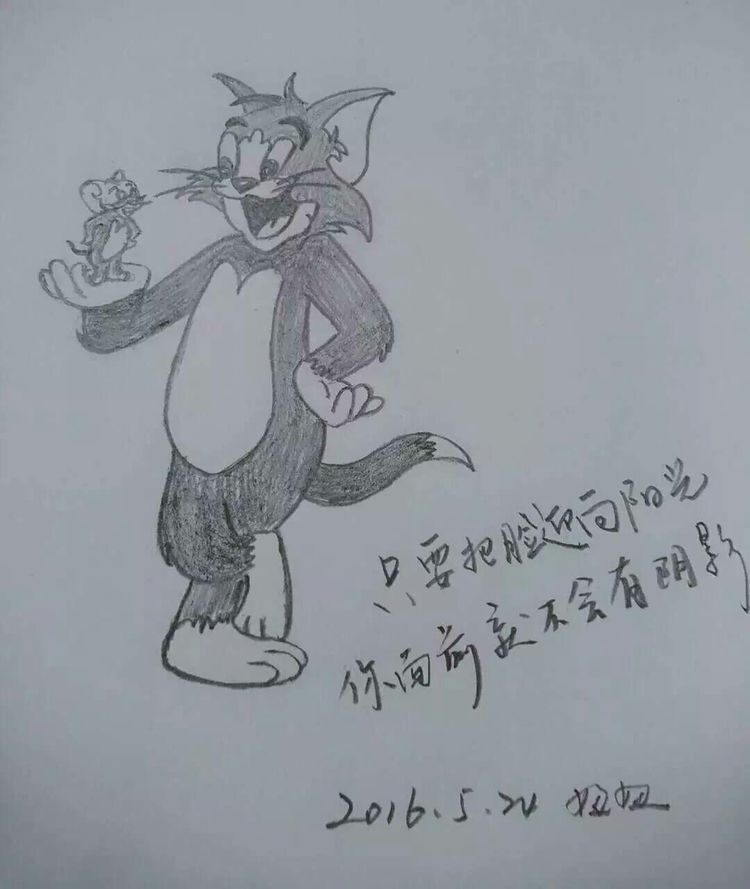 只要把脸迎向阳光
你面前就不会有阴影
2016.5.24 妞妞